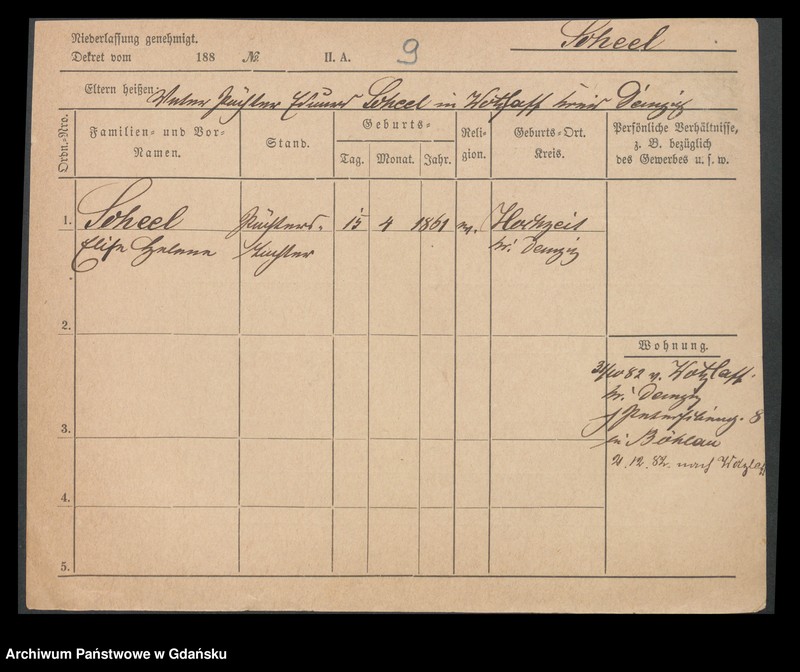 Niederlassung genehmigt.
Dekret vom 188 No. II. A. 9
Scheel
Eltern heißen: Vater Pächter Eduard Scheel in Wotzlaff Kreis Danzig
Ordn.-Nro.
Familien- und Vor-
Namen.
Stand.
Geburts-
Tag. Monat. Jahr.
Reli-
gion.
Geburts-Ort.
Kreis.
Persönliche Verhältnisse,
z. B. bezüglich
des Gewerbes u. s. w.
1. Scheel Pächters- 15 4 1861 Hochzeit
Elise Helene Tochter Kr. Danzig
2.
Wohnung.
82 v. Wotzlaff
Kr. Danzig
8
3.
bei Böhlau
21.12.82. nach Wotzlaff
4.
5.
Archiwum Państwowe w Gdańsku